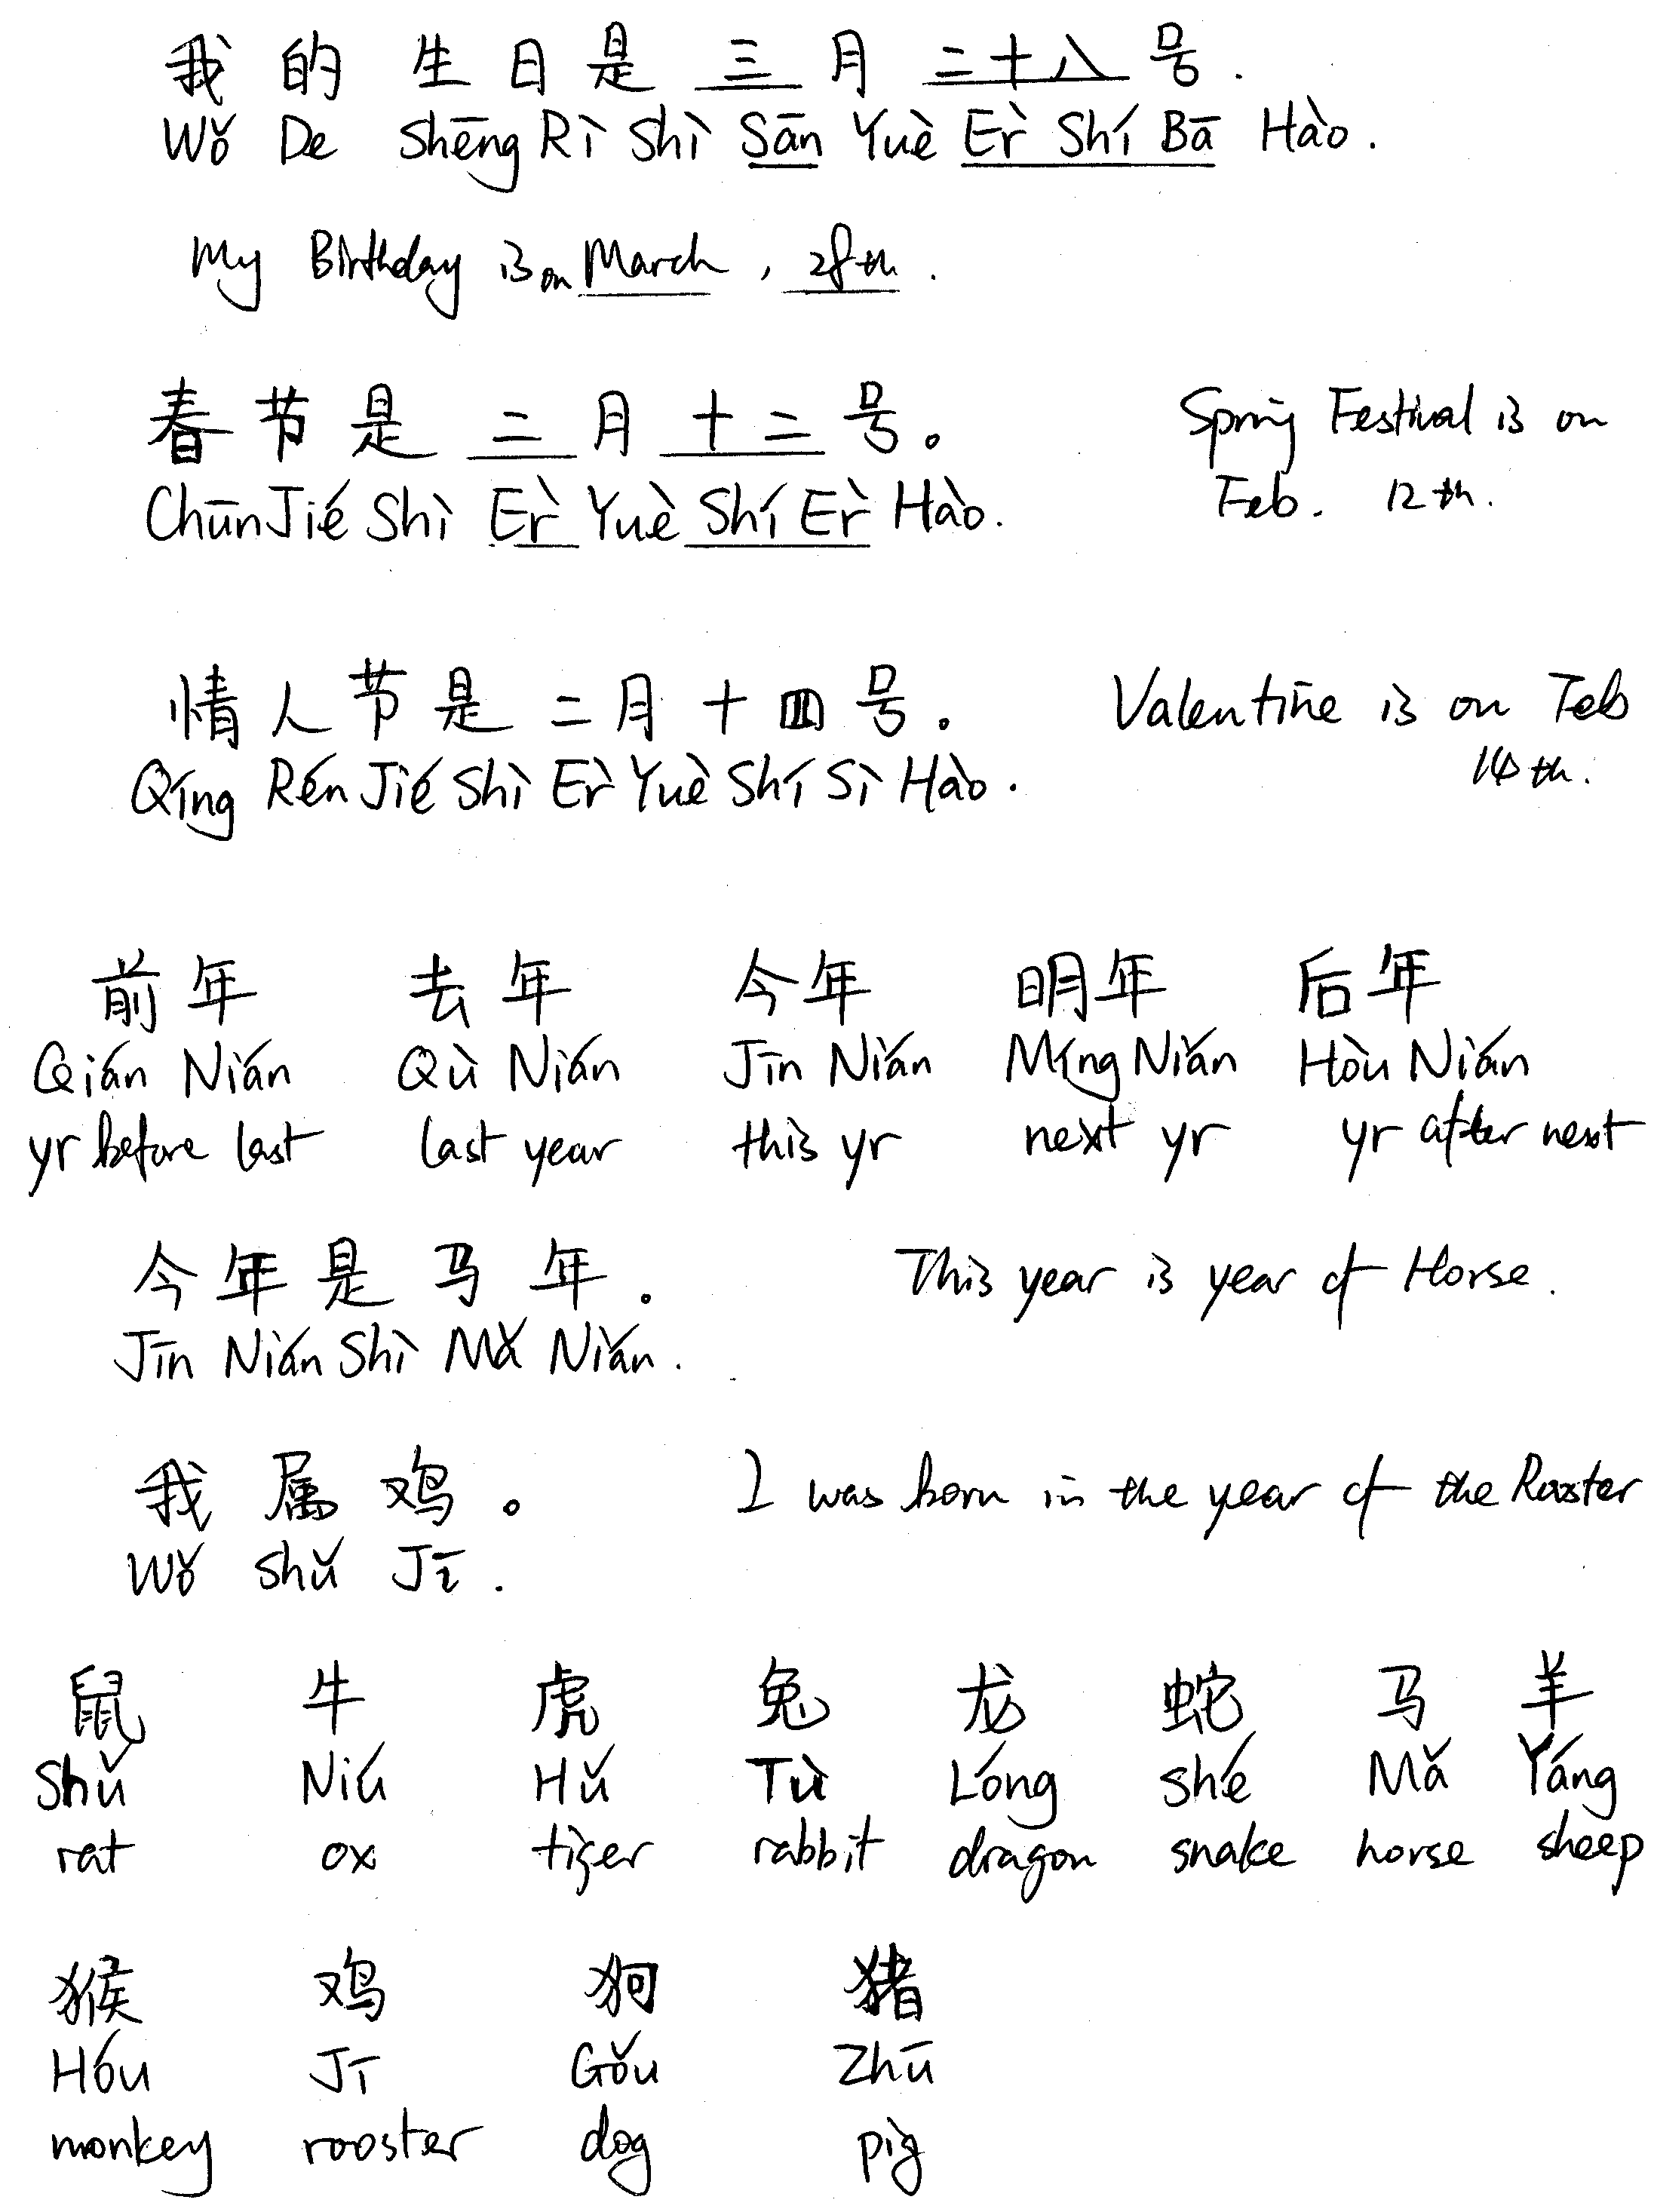 我的生日是三月二十八号.
Wǒ De Shēng Rì Shì Sān Yuè Èr Shí Bā Hào.
My Birthday is on March, 28th.
春节是二月十二号。 Spring Festival is on
Chūn Jié Shì Èr Yuè Shí Èr Hào. Feb. 12th.
情人节是二月十四号。 Valentine is on Feb
Qíng Rén Jié Shì Èr Yuè Shí Sì Hào. 14th.
前年 去年 今年 明年 后年
Qián Nián Qù Nián Jīn Nián Míng Nián Hòu Nián
yr before last last year this yr next yr yr after next
今年是马年。 This year is year of Horse.
Jīn Nián Shì Mǎ Nián.
我属鸡。 I was born in the year of the Rooster
Wǒ Shǔ Jī.
鼠 牛 虎 兔 龙 蛇 马 羊
Shǔ Niú Hǔ Tù Lóng Shé Mǎ Yáng
rat ox tiger rabbit dragon snake horse sheep
猴 鸡 狗 猪
Hóu Jī Gǒu Zhū
monkey rooster dog pig